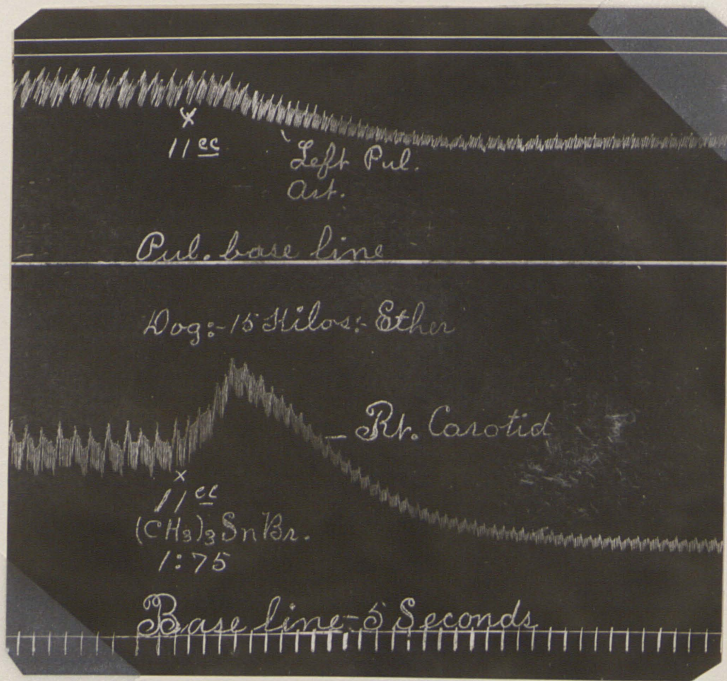 x
11 cc
Left Pul.
Art.
Pul. base line
Dog:-15 Kilos:- Ether
Rt. Carotid
x
11 cc
(CH3)3SnBr.
1:75
Base line-5 Seconds